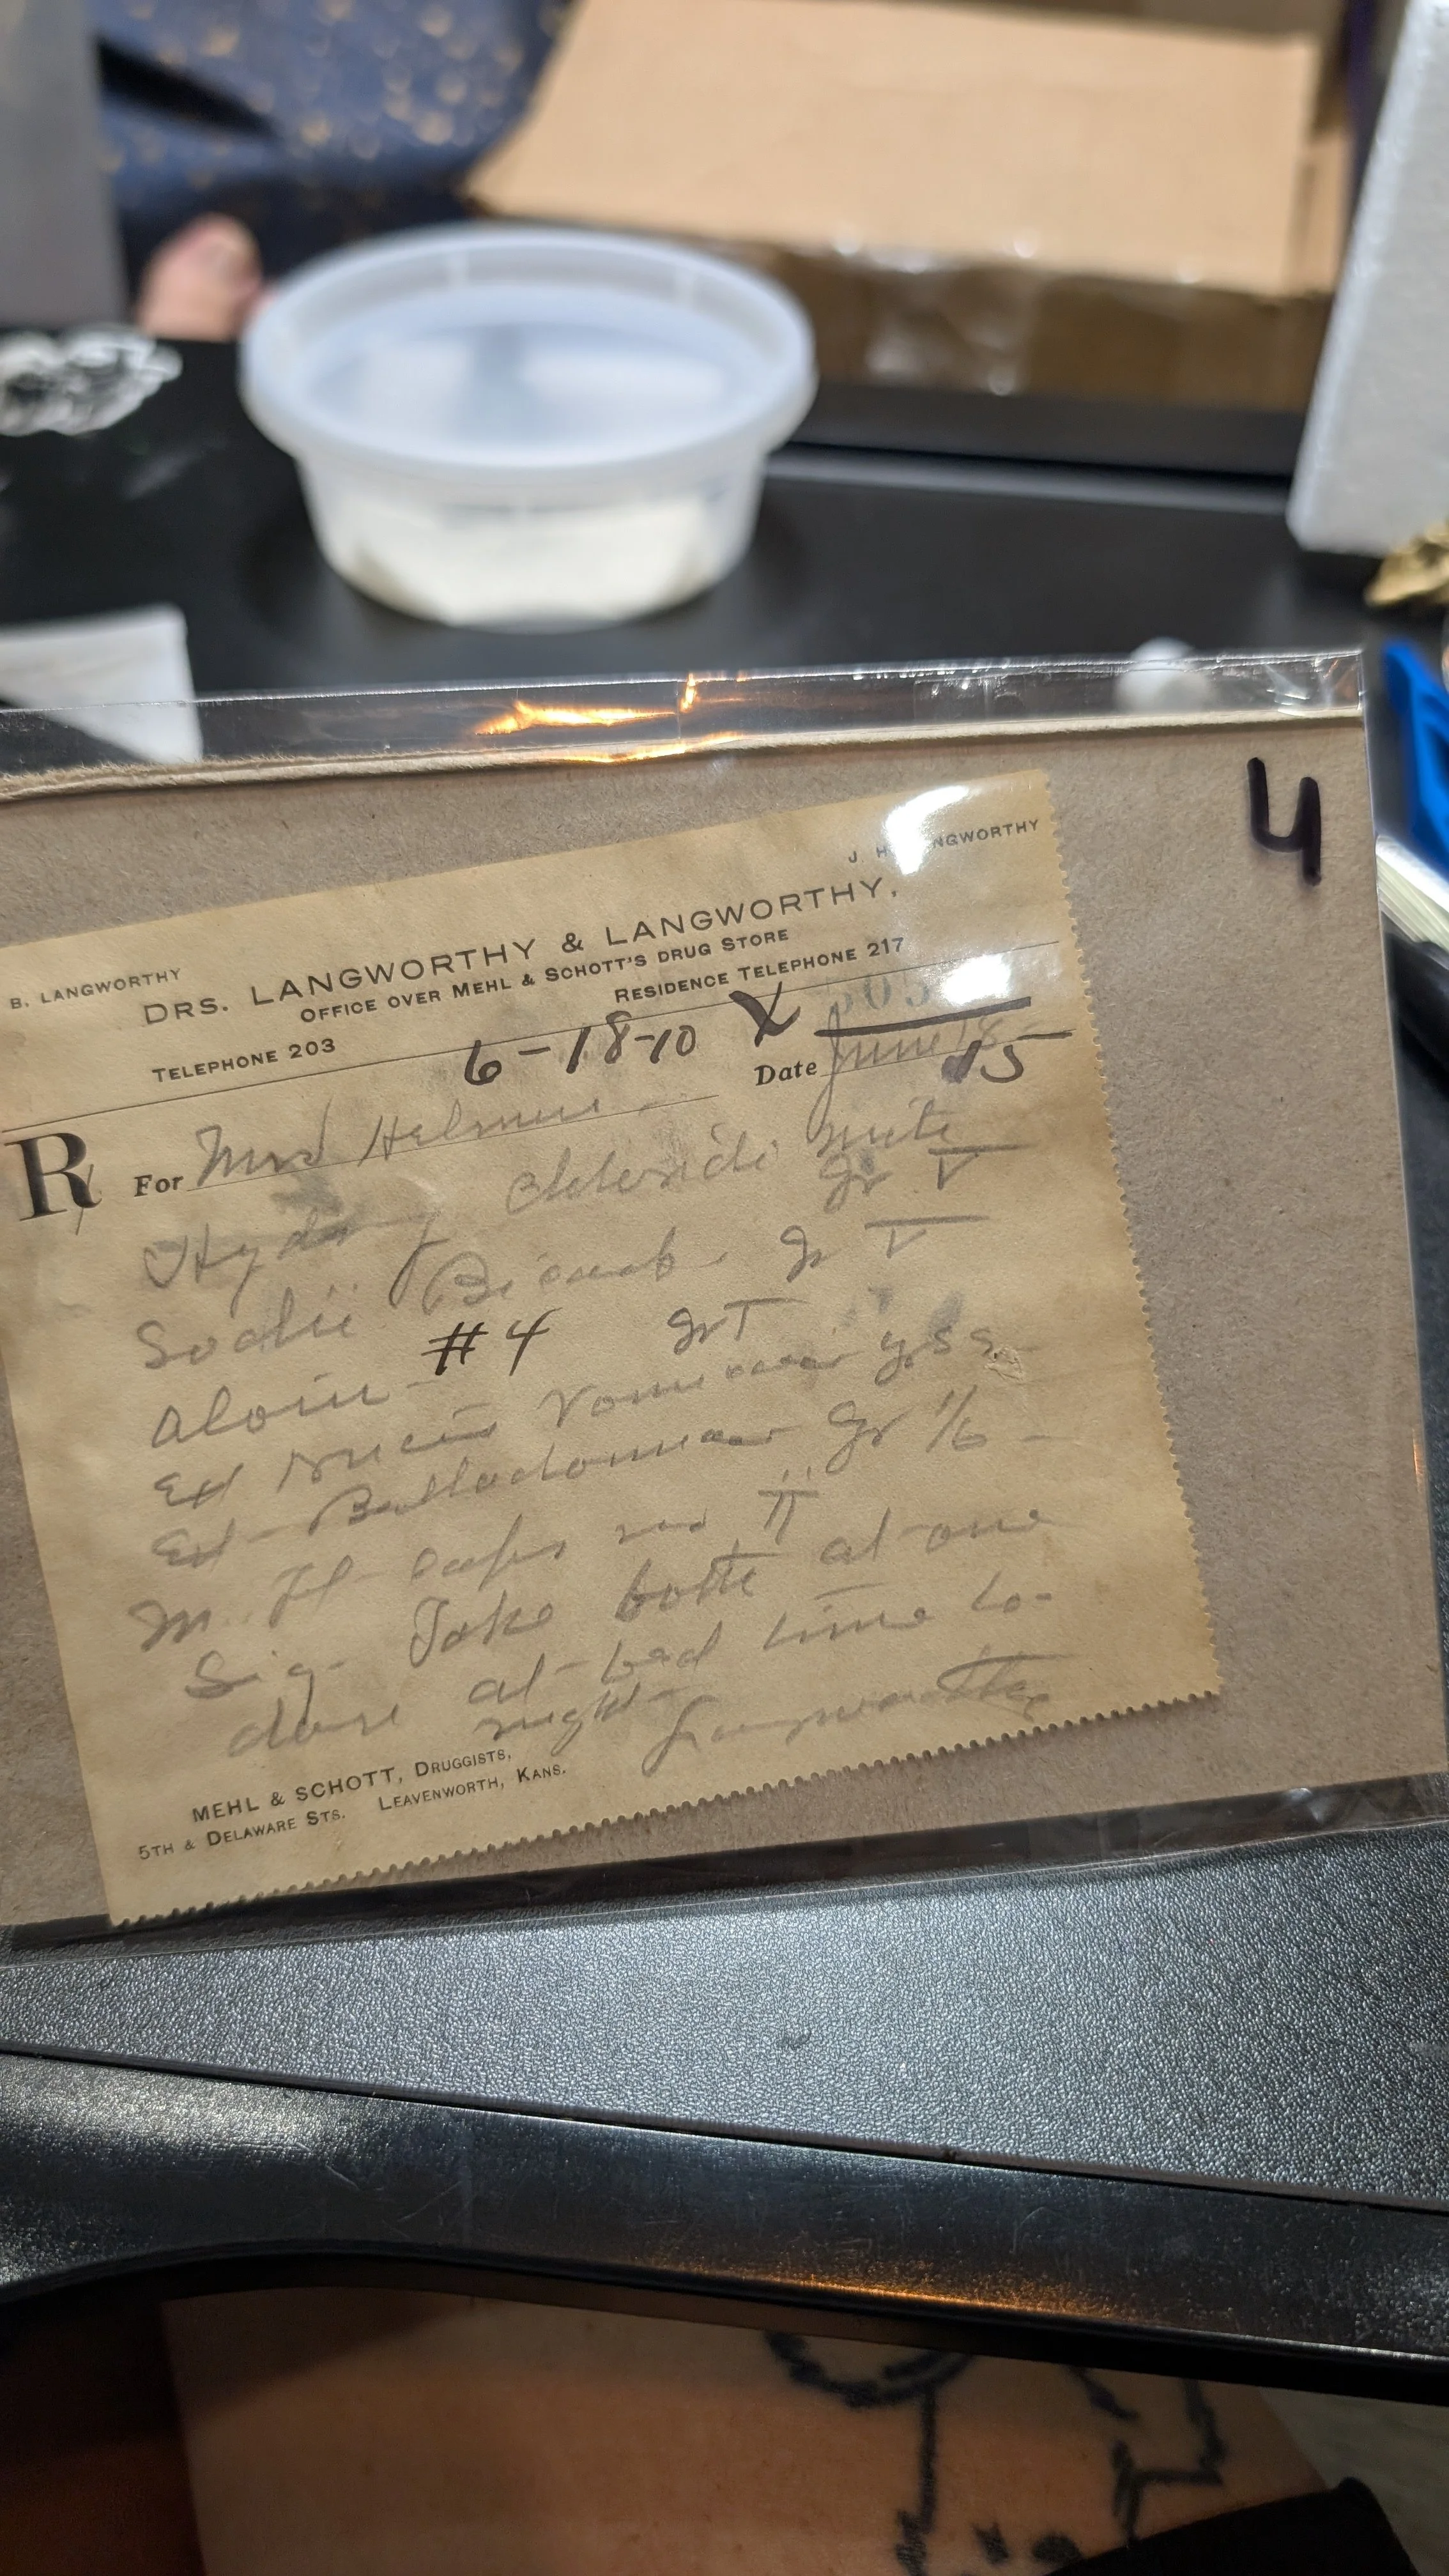 4
B. LANGWORTHY J H NGWORTHY
DRS. LANGWORTHY & LANGWORTHY,
OFFICE OVER MEHL & SCHOTT'S DRUG STORE
TELEPHONE 203 RESIDENCE TELEPHONE 217
6-18-10 X
Date June 18
15
R For Mrs
Chloridi mite
gr V
Sodii Bicarb. gr V
Aloin #4 gr I
Ext Nucis Vomicae gr ss
Ext Belladonnae Gr 1/6
M. Ft caps no II
Sig- Take both at one
dose at bed time to-
night
Langworthy
MEHL & SCHOTT, DRUGGISTS,
5TH & DELAWARE STS. LEAVENWORTH, KANS.